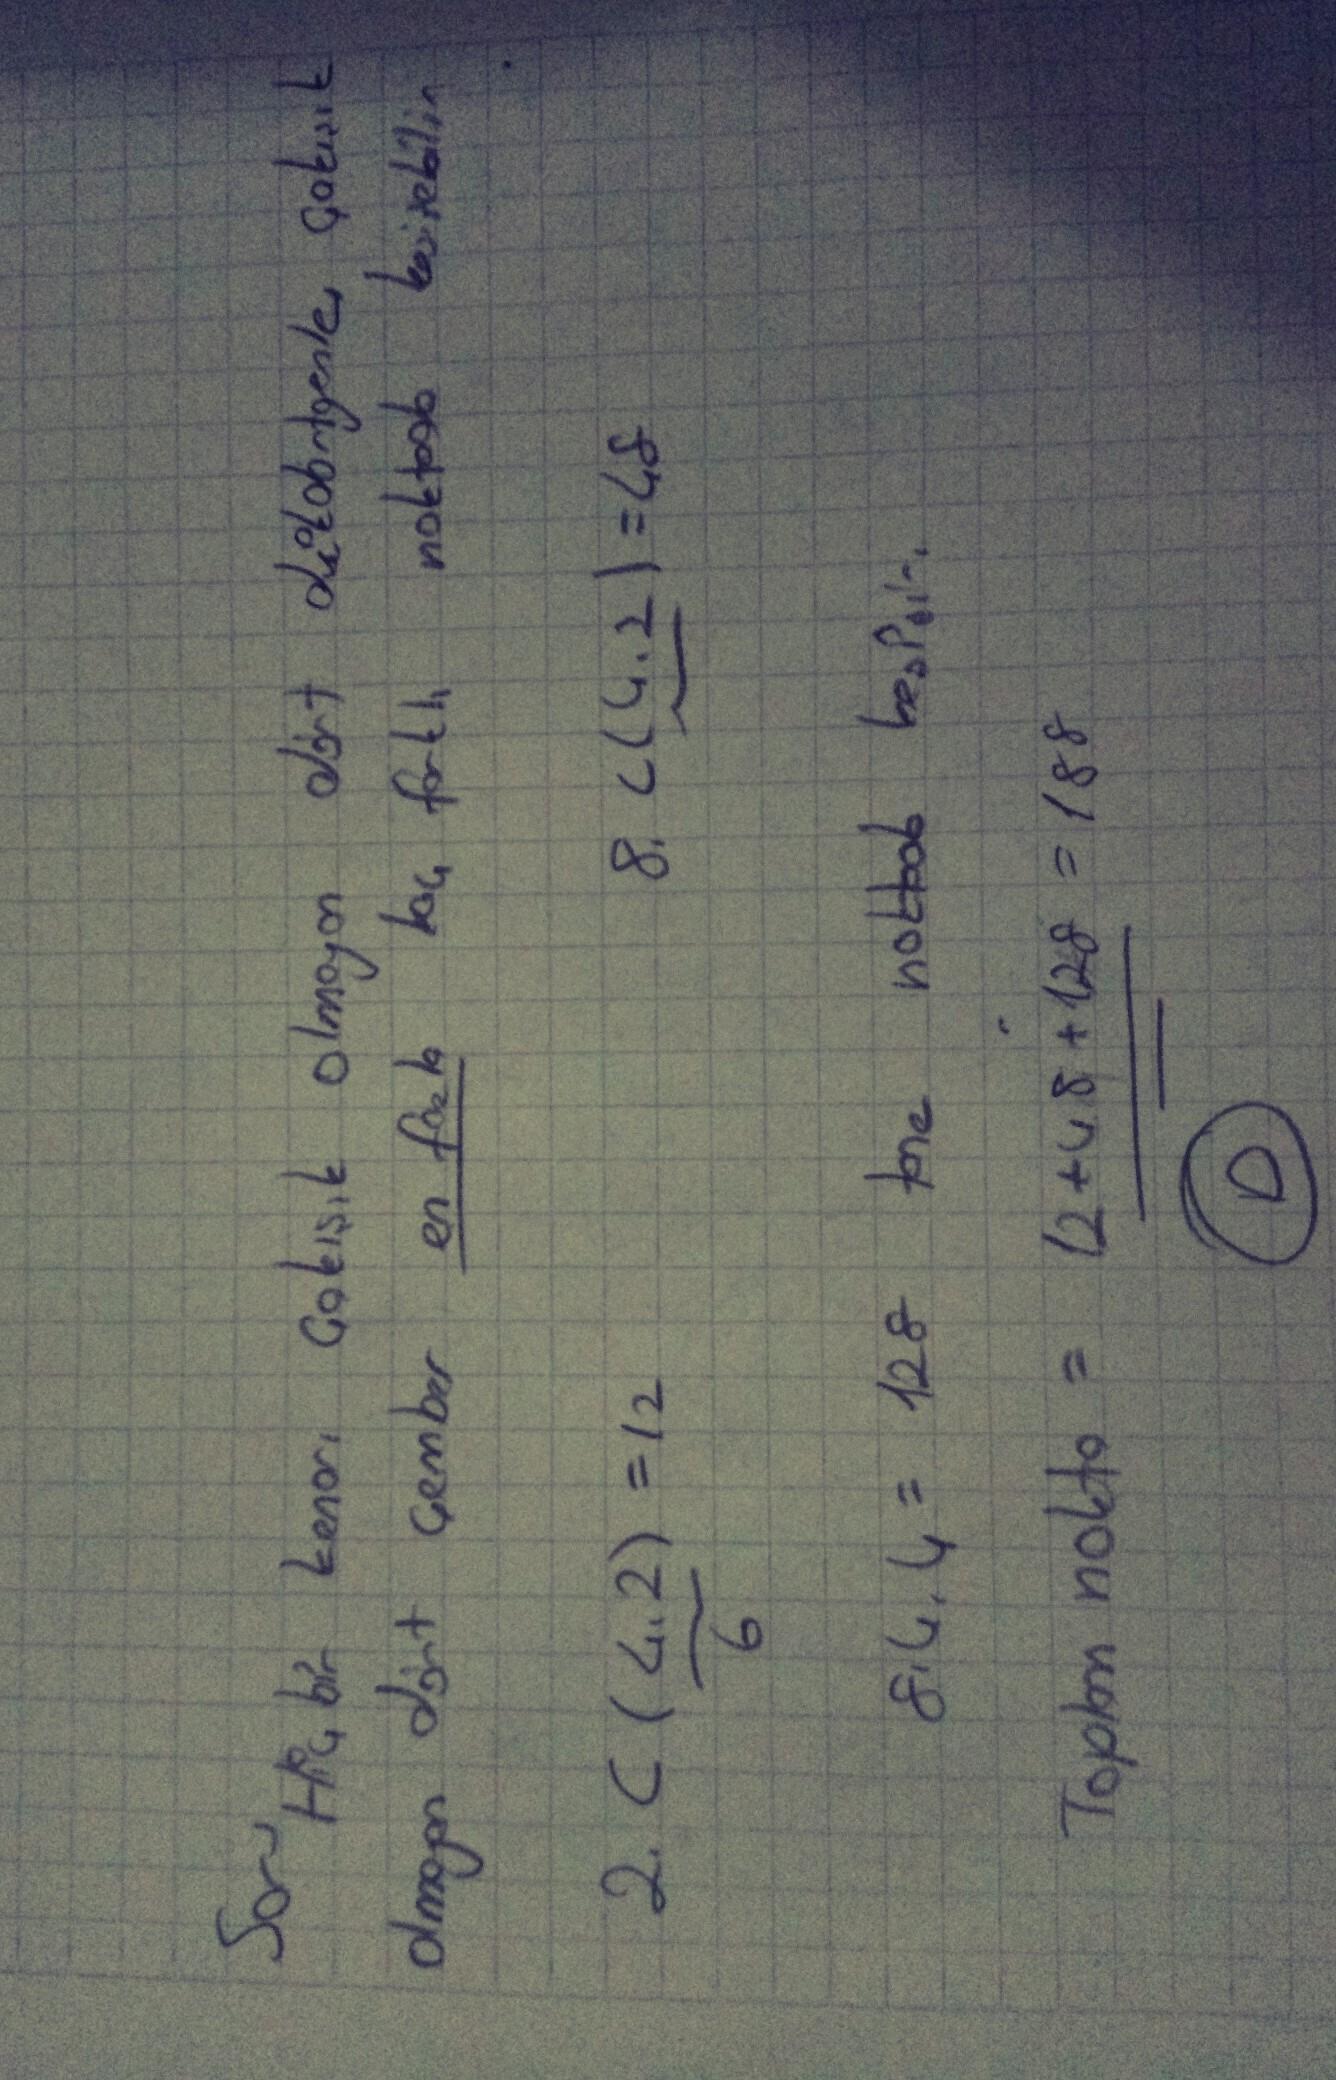 Soru
Hiç bir kenarı Çakışık olmayan dört dikdörtgenle, çakışık
olmayan dört çember en fazla kaç farklı noktada kesişebilir.
2. C (4.2) = 12 8. C (4.2) = 48
6
8.4.4 = 128 tane noktada kesişir.
Toplam nokta = 12 + 48 + 128 = 188
D